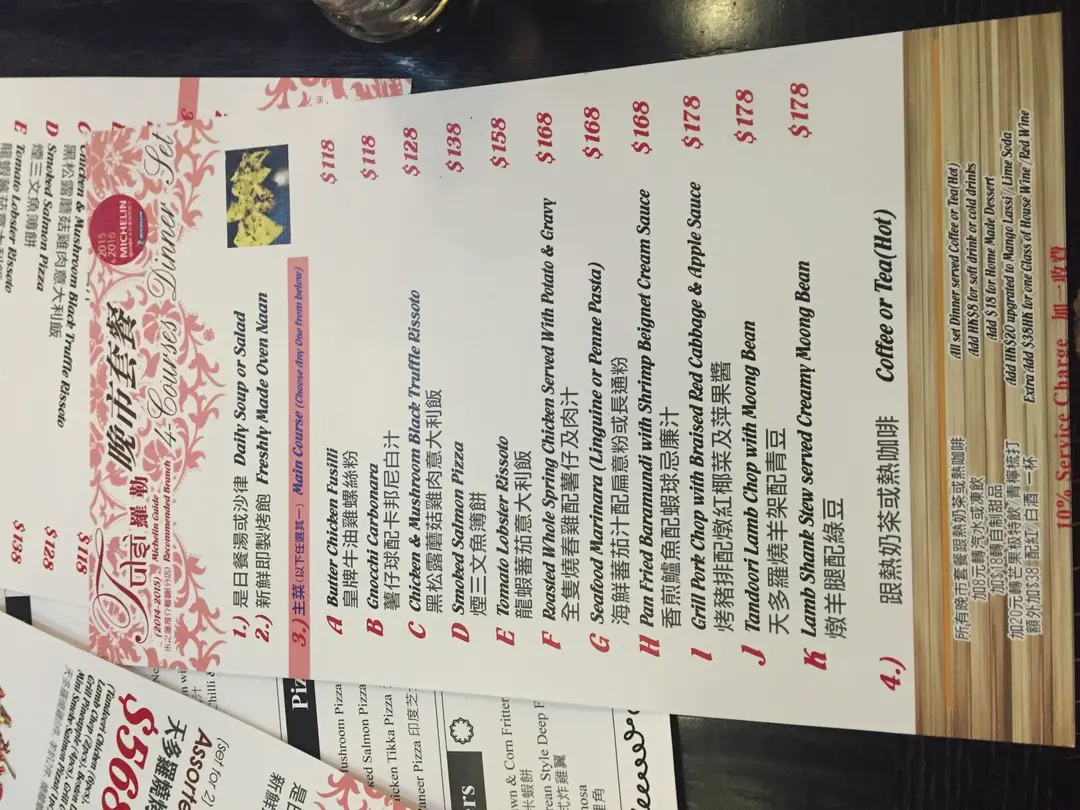 晚市套餐 4 Courses Dinner Set
(2014-2015) Michelin Guide
Recommended Branch
2015
2016
MICHELIN
1.) 是日餐湯或沙律 Daily Soup or Salad
2.) 新鮮即製烤飽 Freshly Made Oven Naan
3.) 主菜 (以下任選其一) Main Course (Choose Any One from below)
A Butter Chicken Fusilli $118
皇牌牛油雞螺絲粉
B Gnocchi Carbonara $118
薯仔球配卡邦尼白汁
C Chicken & Mushroom Black Truffle Rissoto $128
黑松露蘑菇雞肉意大利飯
D Smoked Salmon Pizza $138
煙三文魚簿餅
E Tomato Lobster Rissoto $158
龍蝦蕃茄意大利飯
F Roasted Whole Spring Chicken Served With Potato & Gravy $168
全隻燒春雞配薯仔及肉汁
G Seafood Marinara (Linguine or Penne Pasta) $168
海鮮蕃茄汁配扁意粉或長通粉
H Pan Fried Baramundi with Shrimp Beignet Cream Sauce $168
香煎鱸魚配蝦球忌廉汁
I Gril Pork Chop with Braised Red Cabbage & Apple Sauce $178
烤豬排配燉紅椰菜及萍果醬
J Tandoori Lamb Chop with Moong Bean $178
天多羅燒羊架配青豆
K Lamb Shank Stew served Creamy Moong Bean $178
燉羊腿配綠豆
4.) 跟熱奶茶或熱咖啡 Coffee or Tea(Hot)
所有晚市套餐跟熱奶茶或熱咖啡 All set Dinner served Coffee or Tea(Hot)
加8元轉汽水或凍飲 Add HK$8 for soft drink or cold drinks
加$18轉自制甜品 Add $18 for Home Made Dessert
加20元轉芒果極特飲/青檸梳打 Add HK$20 upgrated to Mango Lassi / Lime Soda
額外加$38計配紅/白酒 一杯 Extra Add $38HK for one Glass of House Wine / Red Wine
10% Service Charge 加一收費
Chicken & Mushroom Black Truffle Rissoto
黑松露蘑菇雞肉意大利飯
D Smoked Salmon Pizza
煙三文魚簿餅
E Tomato Lobster Rissoto
$118
$128
$138
(set for 2)
$568
Piz
ushroom Pizza
ked Salmon Pizza
icken Tikka Pizza
aneer Pizza 印度芝
rs
own & Corn Fritter
米蝦餅
rean Style Deep F
式炸雞翼
nosa